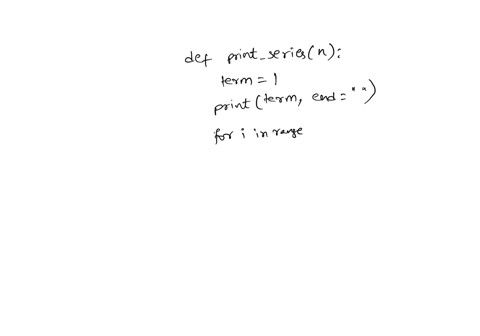 def print_series(n):
term = 1
print(term, end=" ")
for i in range